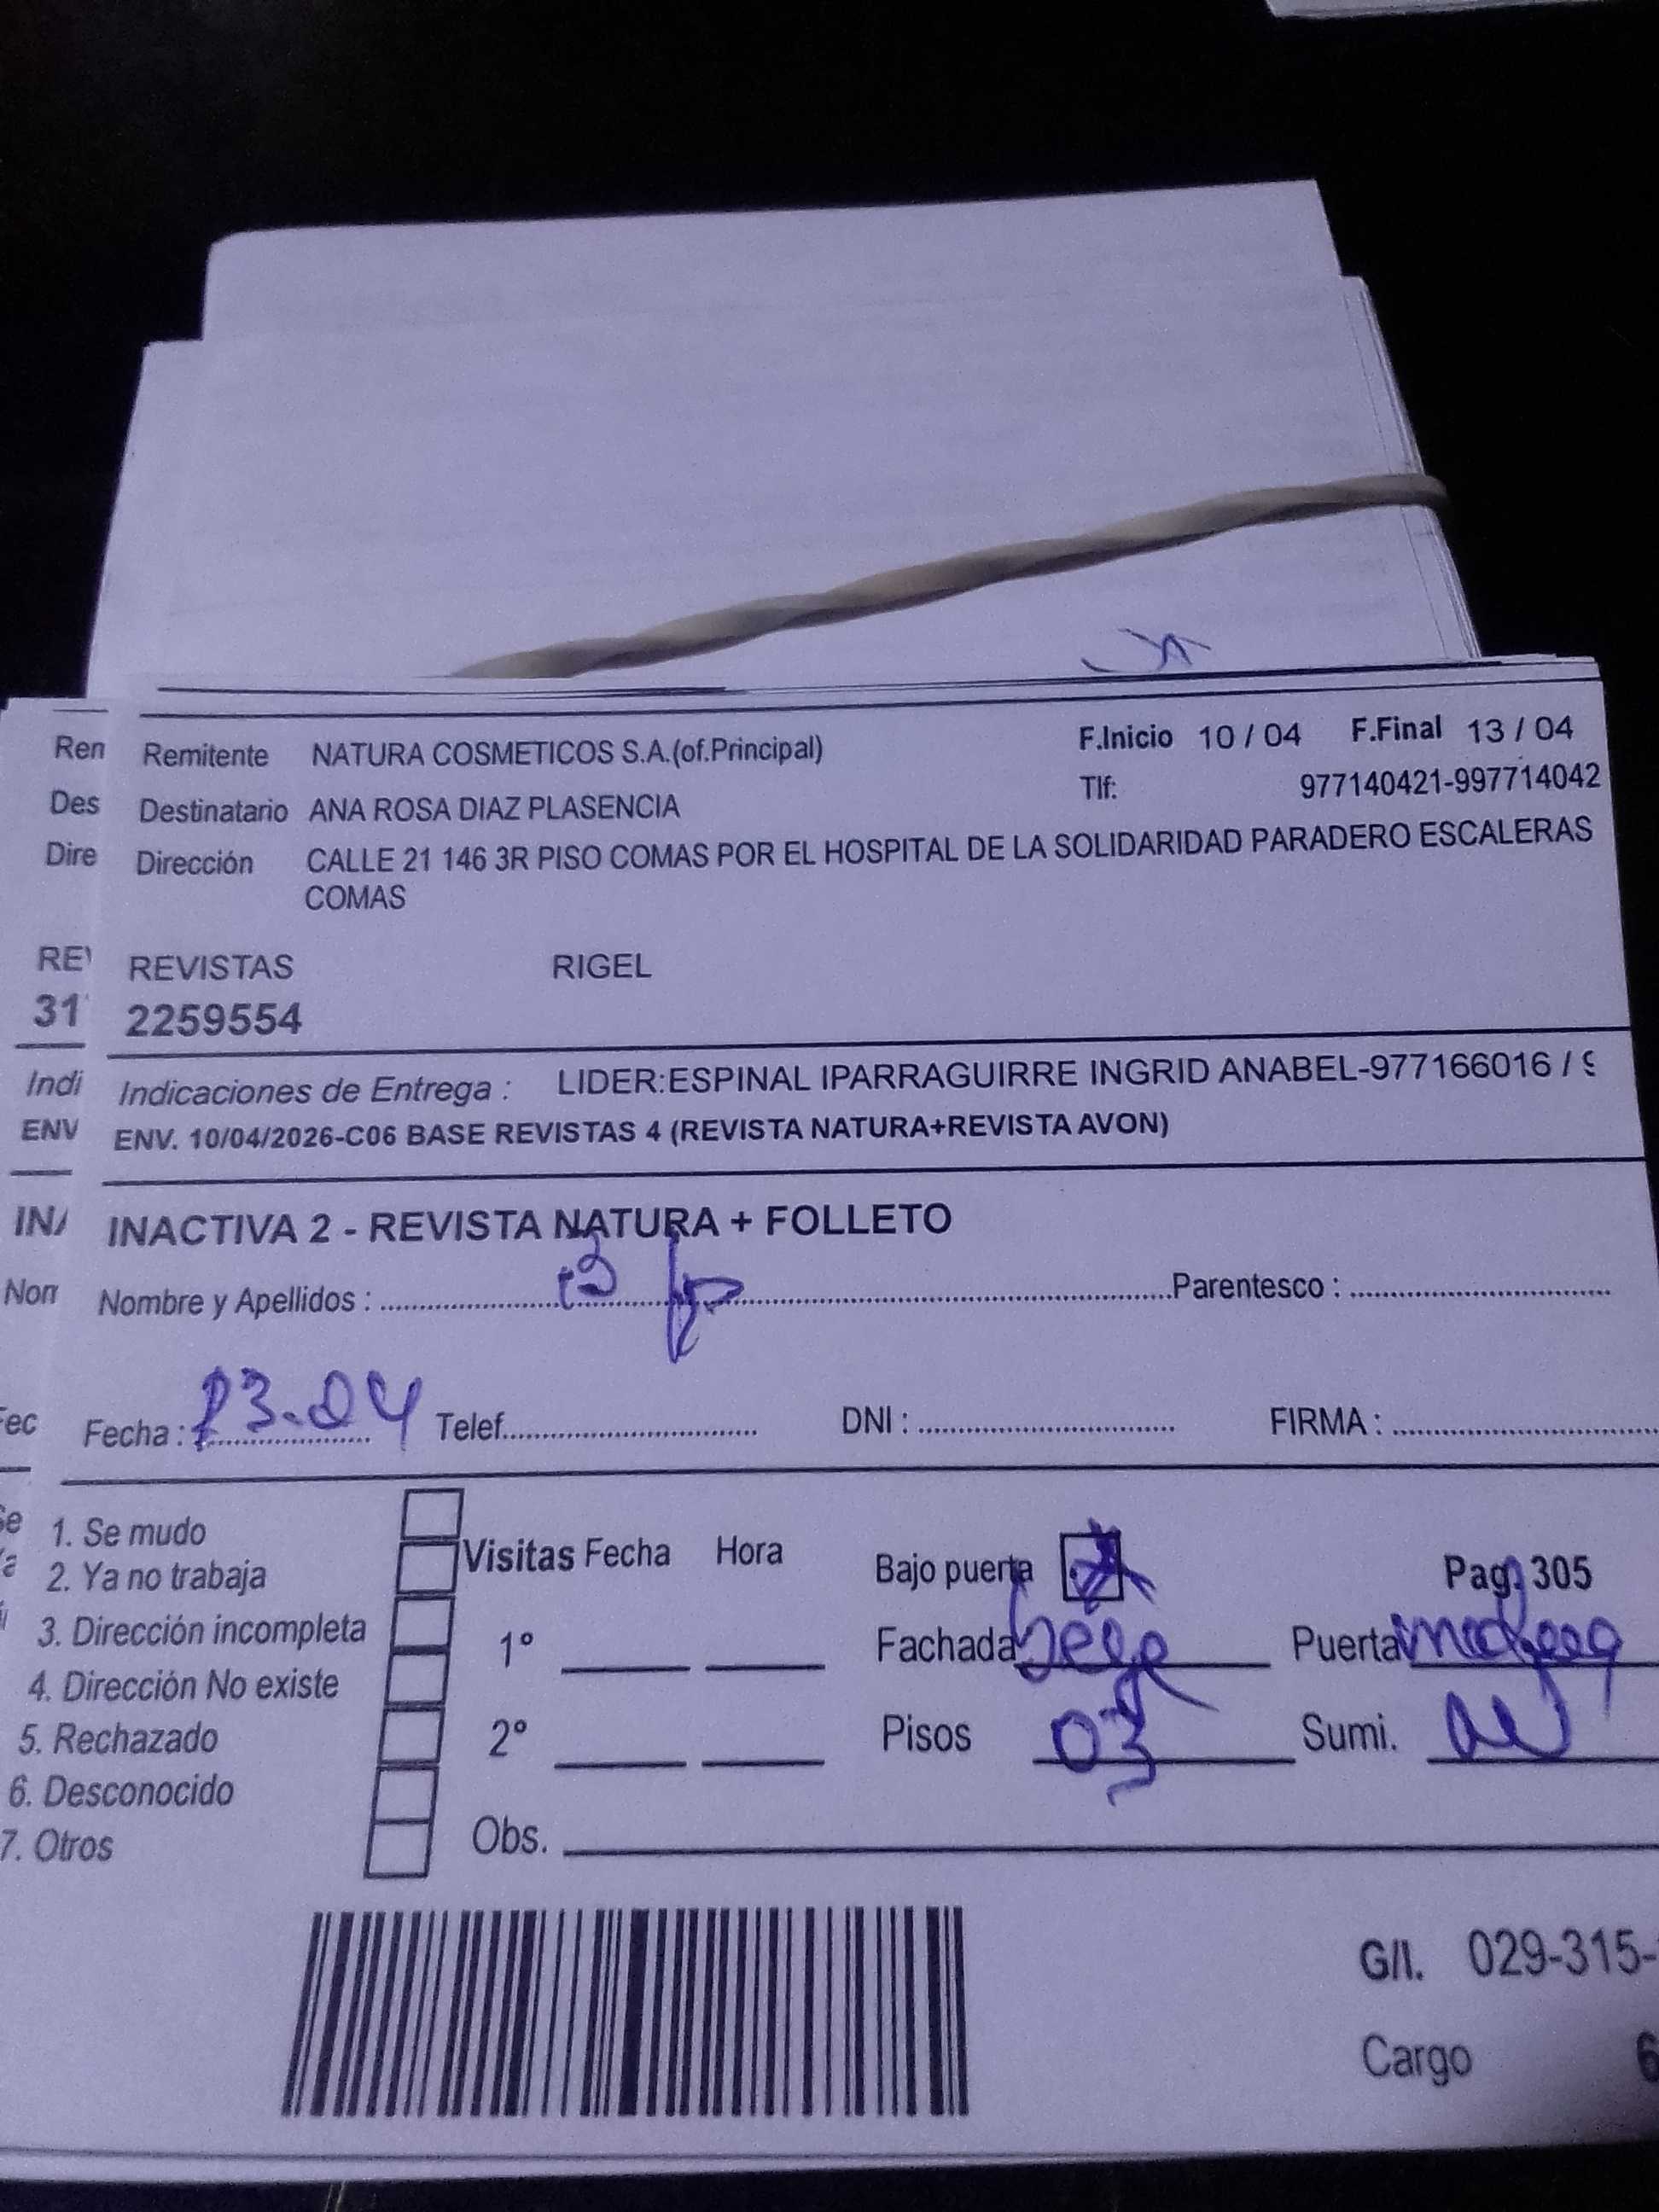 Ren
Des
Dire
RE
31
Indi
ENV
Remitente NATURA COSMETICOS S.A.(of.Principal) F.Inicio 10 / 04 F.Final 13 / 04
Tlf: 977140421-997714042
Destinatario ANA ROSA DIAZ PLASENCIA
Dirección CALLE 21 146 3R PISO COMAS POR EL HOSPITAL DE LA SOLIDARIDAD PARADERO ESCALERAS
COMAS
REVISTAS RIGEL
2259554
Indicaciones de Entrega : LIDER:ESPINAL IPARRAGUIRRE INGRID ANABEL-977166016 /
ENV. 10/04/2026-C06 BASE REVISTAS 4 (REVISTA NATURA+REVISTA AVON)
INACTIVA 2 - REVISTA NATURA + FOLLETO
Nombre y Apellidos : Parentesco :
Fecha : 13-04 Telef. DNI : FIRMA :
1. Se mudo
2. Ya no trabaja
3. Dirección incompleta
4. Dirección No existe
5. Rechazado
6. Desconocido
7. Otros
Visitas Fecha Hora
1º
2º
Obs.
Bajo puerta Pag. 305
Fachada beige Puerta
Pisos 03 Sumi.
G/I. 029-315-
Cargo 6